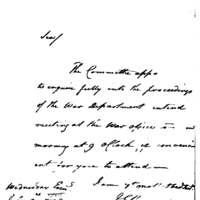 Sir/
The Committee appo
to enquire fully into the proceedings
of the War Department intend
meeting at the War office
morning at 9 O'Clock, if convenient
ent for you to attend —
Wednesday Eve'g
I am Y'r most